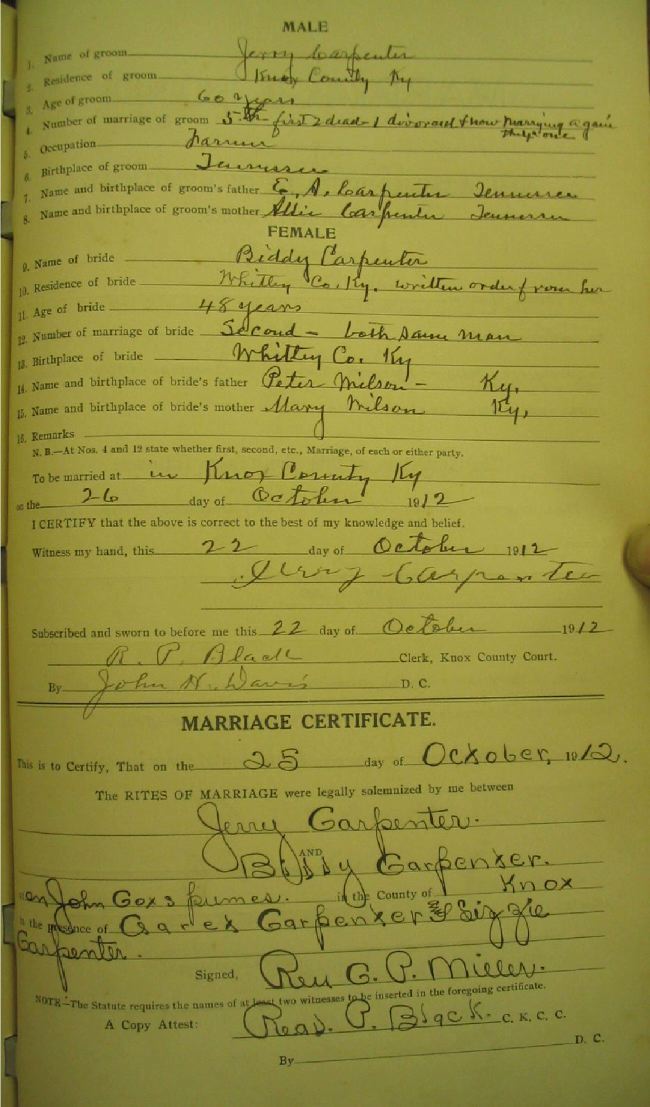 MALE
1. Name of groom Jerry Carpenter
2. Residence of groom Knox County Ky
3. Age of groom 60 years
4. Number of marriage of groom 5th - first 2 dead - 1 divorced & now marrying again
this one
5. Occupation Farmer
6. Birthplace of groom Tennessee
7. Name and birthplace of groom's father E. A. Carpenter Tennessee
8. Name and birthplace of groom's mother Allie Carpenter Tennessee
FEMALE
9. Name of bride Biddy Carpenter
10. Residence of bride Whitley Co. Ky. written order from her
11. Age of bride 48 years
12. Number of marriage of bride Second - both same man
13. Birthplace of bride Whitley Co. Ky
14. Name and birthplace of bride's father Peter Wilson - Ky.
15. Name and birthplace of bride's mother Mary Wilson Ky.
16. Remarks
N. B.—At Nos. 4 and 12 state whether first, second, etc., Marriage, of each or either party.
To be married at in Knox County Ky
on the 26 day of October 1912
I CERTIFY that the above is correct to the best of my knowledge and belief.
Witness my hand, this 22 day of October 1912
Jerry Carpenter
Subscribed and sworn to before me this 22 day of October 1912
R. P. Black Clerk, Knox County Court.
By John H. Davis D. C.
MARRIAGE CERTIFICATE.
This is to Certify, That on the 25 day of October, 1912.
The RITES OF MARRIAGE were legally solemnized by me between
Jerry Carpenter.
AND
Biddy Carpenter.
John Cox in the County of Knox
in the presence of Carpenter & Lizzie
Carpenter.
Signed, Rev G. P. Miller.
NOTE—The Statute requires the names of at least two witnesses to be inserted in the foregoing certificate.
A Copy Attest: Read. P. Black. C. K. C. C.
By D. C.